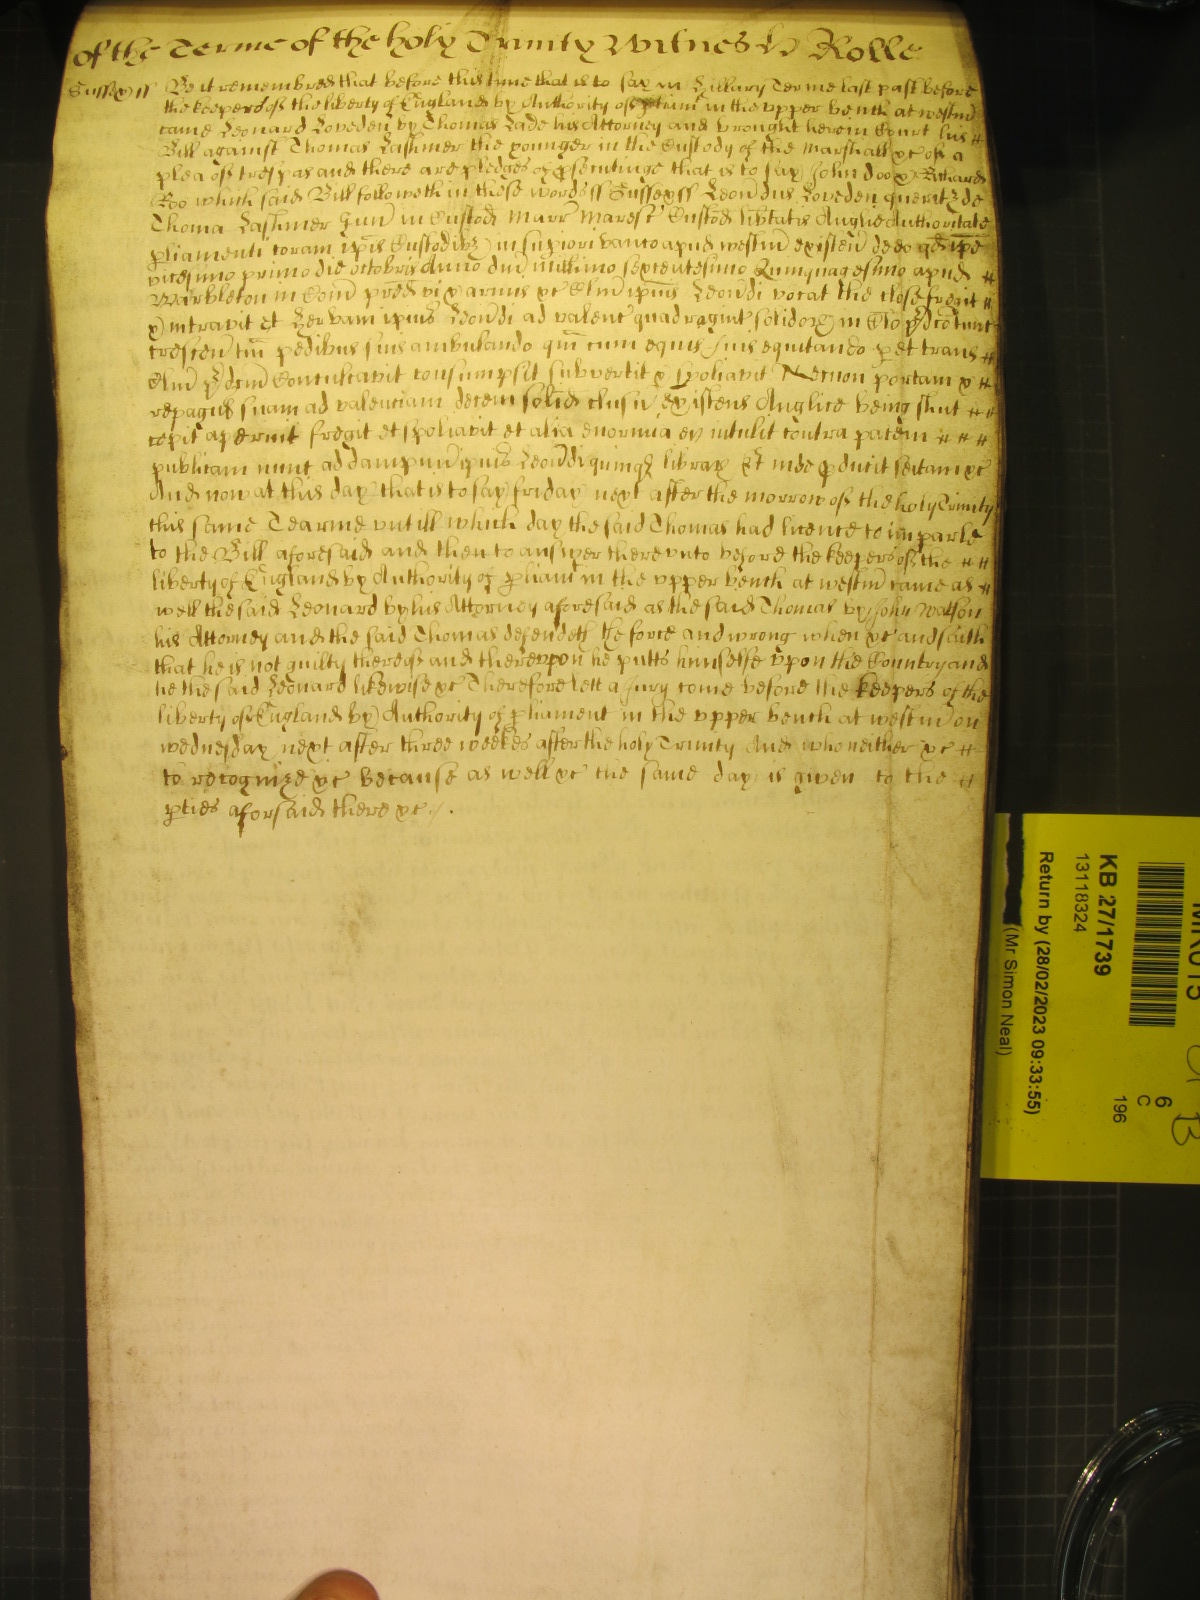 of the Terme of the holy Trinity Witnes Rolle
Sussex ss Be it remembred that before this tyme that is to say in Hillary Terme last past before
the keepers of the liberty of England by Authority of in the upper bench at westm
came Leonard Loveden by Thomas Lade his Attorney and brought here in Court his #
Bill against Thomas Lashmer the younger in the Custody of the Marshall &c of a
plea of trespas and there are pledges of psentinge that is to say John doo & Richard
Roo which said Bill followeth in these words ss Sussex ss Leondus Loveden querit de
Thoma Lashmer Jun in Custod Marr Maresc Custod libtatis Anglie Authoritate
pliamenti coram ipis Custodibz in supiori banco apud westm existen de eo qd ipe
vicesimo primo die Octobris Anno dni millimo sexcentesimo Quinquagesimo apud #
Warbleton in Com pred vi & armis &c Clm ipius Leondi vocat the close fregit #
& intravit Et Herbam ipius Leondi ad valenc quadragint solidor in Clo pd tunc
crescen tm pedibus suis ambulando qm cum equis suis equitando p et trans #
Clm pdcm Conculcavit consumpsit subvertit & spoliavit Necnon portam & #
repagul suam ad valenciam decem solid clusu existens Anglice being shut # #
cepit aperuit fregit et spoliavit et alia enormia ei intulit contra pacem # # #
publicam nunc ad dampnu ipius Leondi quinqz librar Et inde pducit sectam &c
And now at this day that is to say friday next after the morrow of the holy Trinity
this same Tearme untill which day the said Thomas had licence to imparle
to the Bill aforesaid and then to answer thereunto before the keepers of the # #
liberty of England by Authority of pliam in the upper bench at westm came as #
well the said Leonard by his Attorney aforesaid as the said Thomas by John Watson
his Attorney and the said Thomas defendeth the force and wrong when &c and saith
that he is not guilty thereof and thereupon he putts himselfe upon the Country and
he the said Leonard likewise &c Therefore lett a Jury come before the keepers of the
liberty of England by Authority of pliament in the upper bench at westm on
wednesday next after three weekes after the holy Trinity And who neither &c #
to recognize &c Because as well &c the same day is given to the #
pties aforsaid there &c.
KB 27/1739
13118324
Return by (28/02/2023 09:33:55)
(Mr Simon Neal)
6
C
196